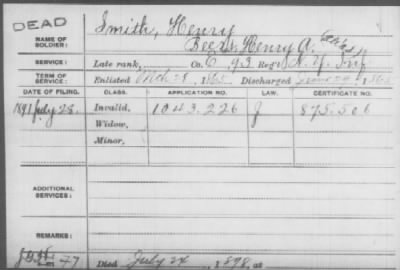 DEAD
Smith, Henry
NAME OF SOLDIER:
Henry A.
SERVICE: Late rank, Co. C, 93 Reg't N.Y. Inf
TERM OF SERVICE: Enlisted Mch 28, 1865 Discharged June 29, 1865
DATE OF FILING. CLASS. APPLICATION NO. LAW. CERTIFICATE NO.
1891 July 28. Invalid, 1043.226 J 875.506
Widow,
Minor,
ADDITIONAL SERVICES:
REMARKS:
Died July 24, 1898, at